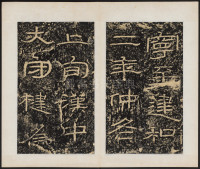 寧至建和
二年仲冬
上旬漢中
大守楗為